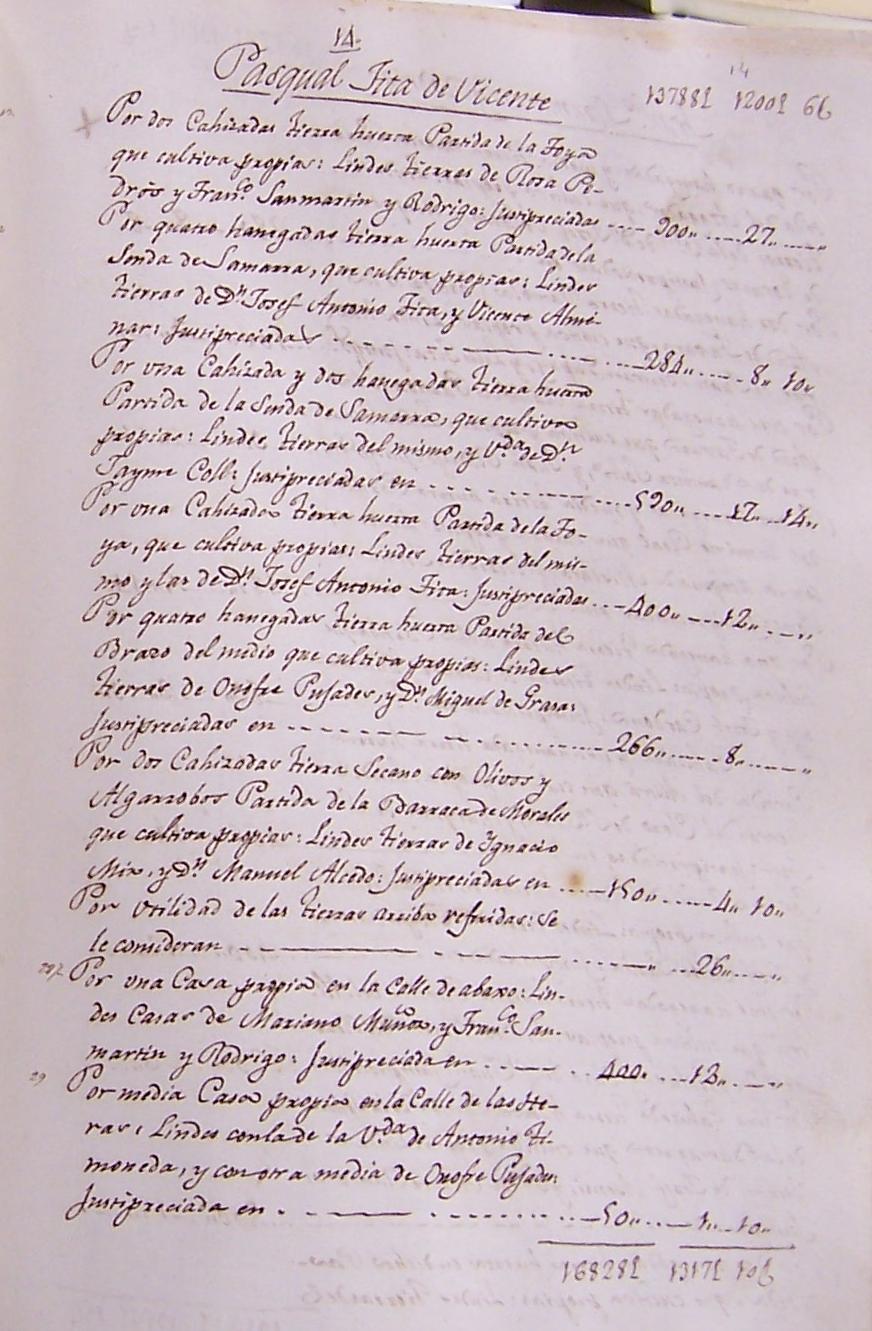 14.
Pasqual Fita de Vicente
13788£ 1200£ 6ỻ
Por dos Cahizadas tierra huerta Partida de la Foya
que cultiva propias: Lindes tierras de Rosa Pe-
drós y Fran.co Sanmartin y Rodrigo: Justipreciadas .... 900„ ..... 27„ ..... „
Por quatro hanegadas tierra huerta Partida de la
Senda de Samarra, que cultiva propias: Lindes
tierras de Dn. Josef Antonio Fita, y Vicente Almi-
nar: Justipreciadas ..... 284„ ..... 8„ 10„
Por una Cahizada y dos hanegadas tierra huerta
Partida de la Senda de Samarra, que cultiva
propias: Lindes tierras del mismo, y V.da de Dn.
Jayme Coll: Justipreciadas en ..... 590„ ..... 17„ .. 14„
Por una Cahizada tierra huerta Partida de la Fo-
ya, que cultiva propias: Lindes tierras del mis-
mo y las de Dn. Josef Antonio Fita: Justipreciadas ... 400„ .... 12„ .... „
Por quatro hanegadas tierra huerta Partida del
Brazo del medio que cultiva propias: Lindes
tierras de Onofre Pusades, y Dn. Miguel de Grasa:
Justipreciadas en ..... 266„ ..... 8„ ..... „
Por dos Cahizadas tierra Secano con Olivos y
Algarrobos Partida de la Barraca de Morales
que cultiva propias: Lindes tierras de Ygnacio
Mix, y Dn. Manuel Alcedo: Justipreciadas en ..... 150„ ..... 4„ 10„
Por Utilidad de las tierras arriba referidas: se
le consideran ..... „ ... 26„ .... „
Por una Casa propia en la Calle de abaxo: Lin-
des Casas de Mariano Muñoz, y Fran.co San-
martin y Rodrigo: Justipreciada en ..... 400„ ... 12„ .... „
29
Por media Casa propia en la Calle de las He-
ras: Lindes con la de la V.da de Antonio Ti-
moneda, y con otra media de Onofre Pusades:
Justipreciada en ..... 50„ .... 1„ .. 10„
16828£ 1317£ 10ỻ